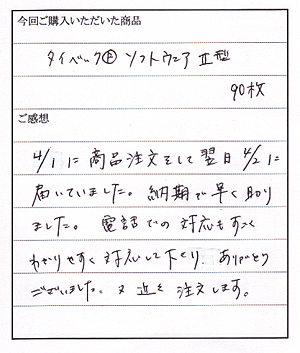 今回ご購入いただいた商品
タイベック® ソフトウェア Ⅱ型
90枚
ご感想
4/1に商品注文をして翌日4/2に
届いていました。納期で早く助り
ました。電話での対応もすごく
わかりやすく対応して下さり、ありがとう
ございました。又近々注文します。